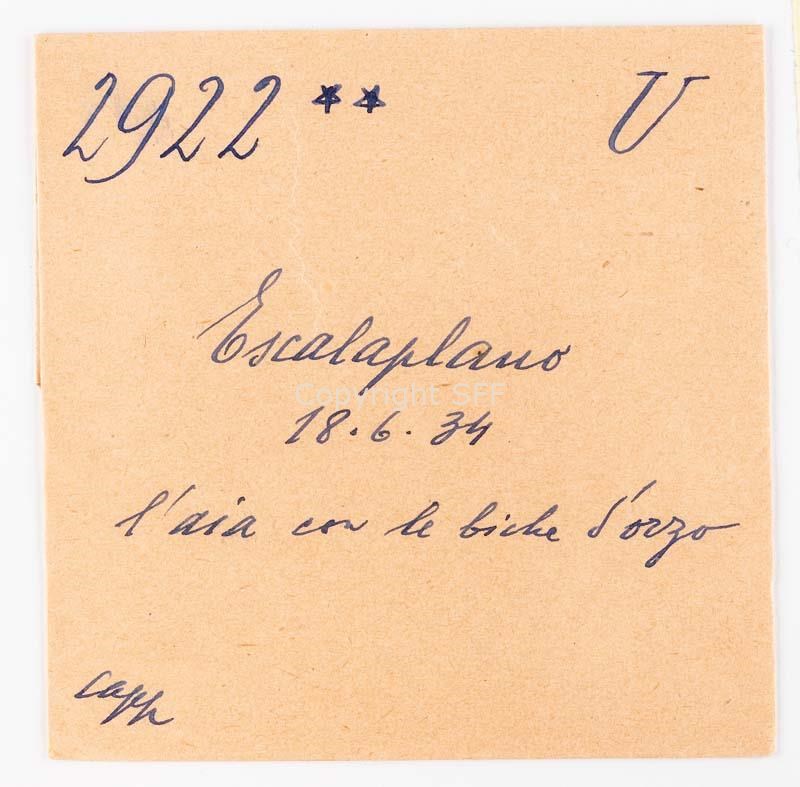 2922 ** U
Escalaplano
Copyright SFF
18.6.34
l'aia con le biche d'orzo